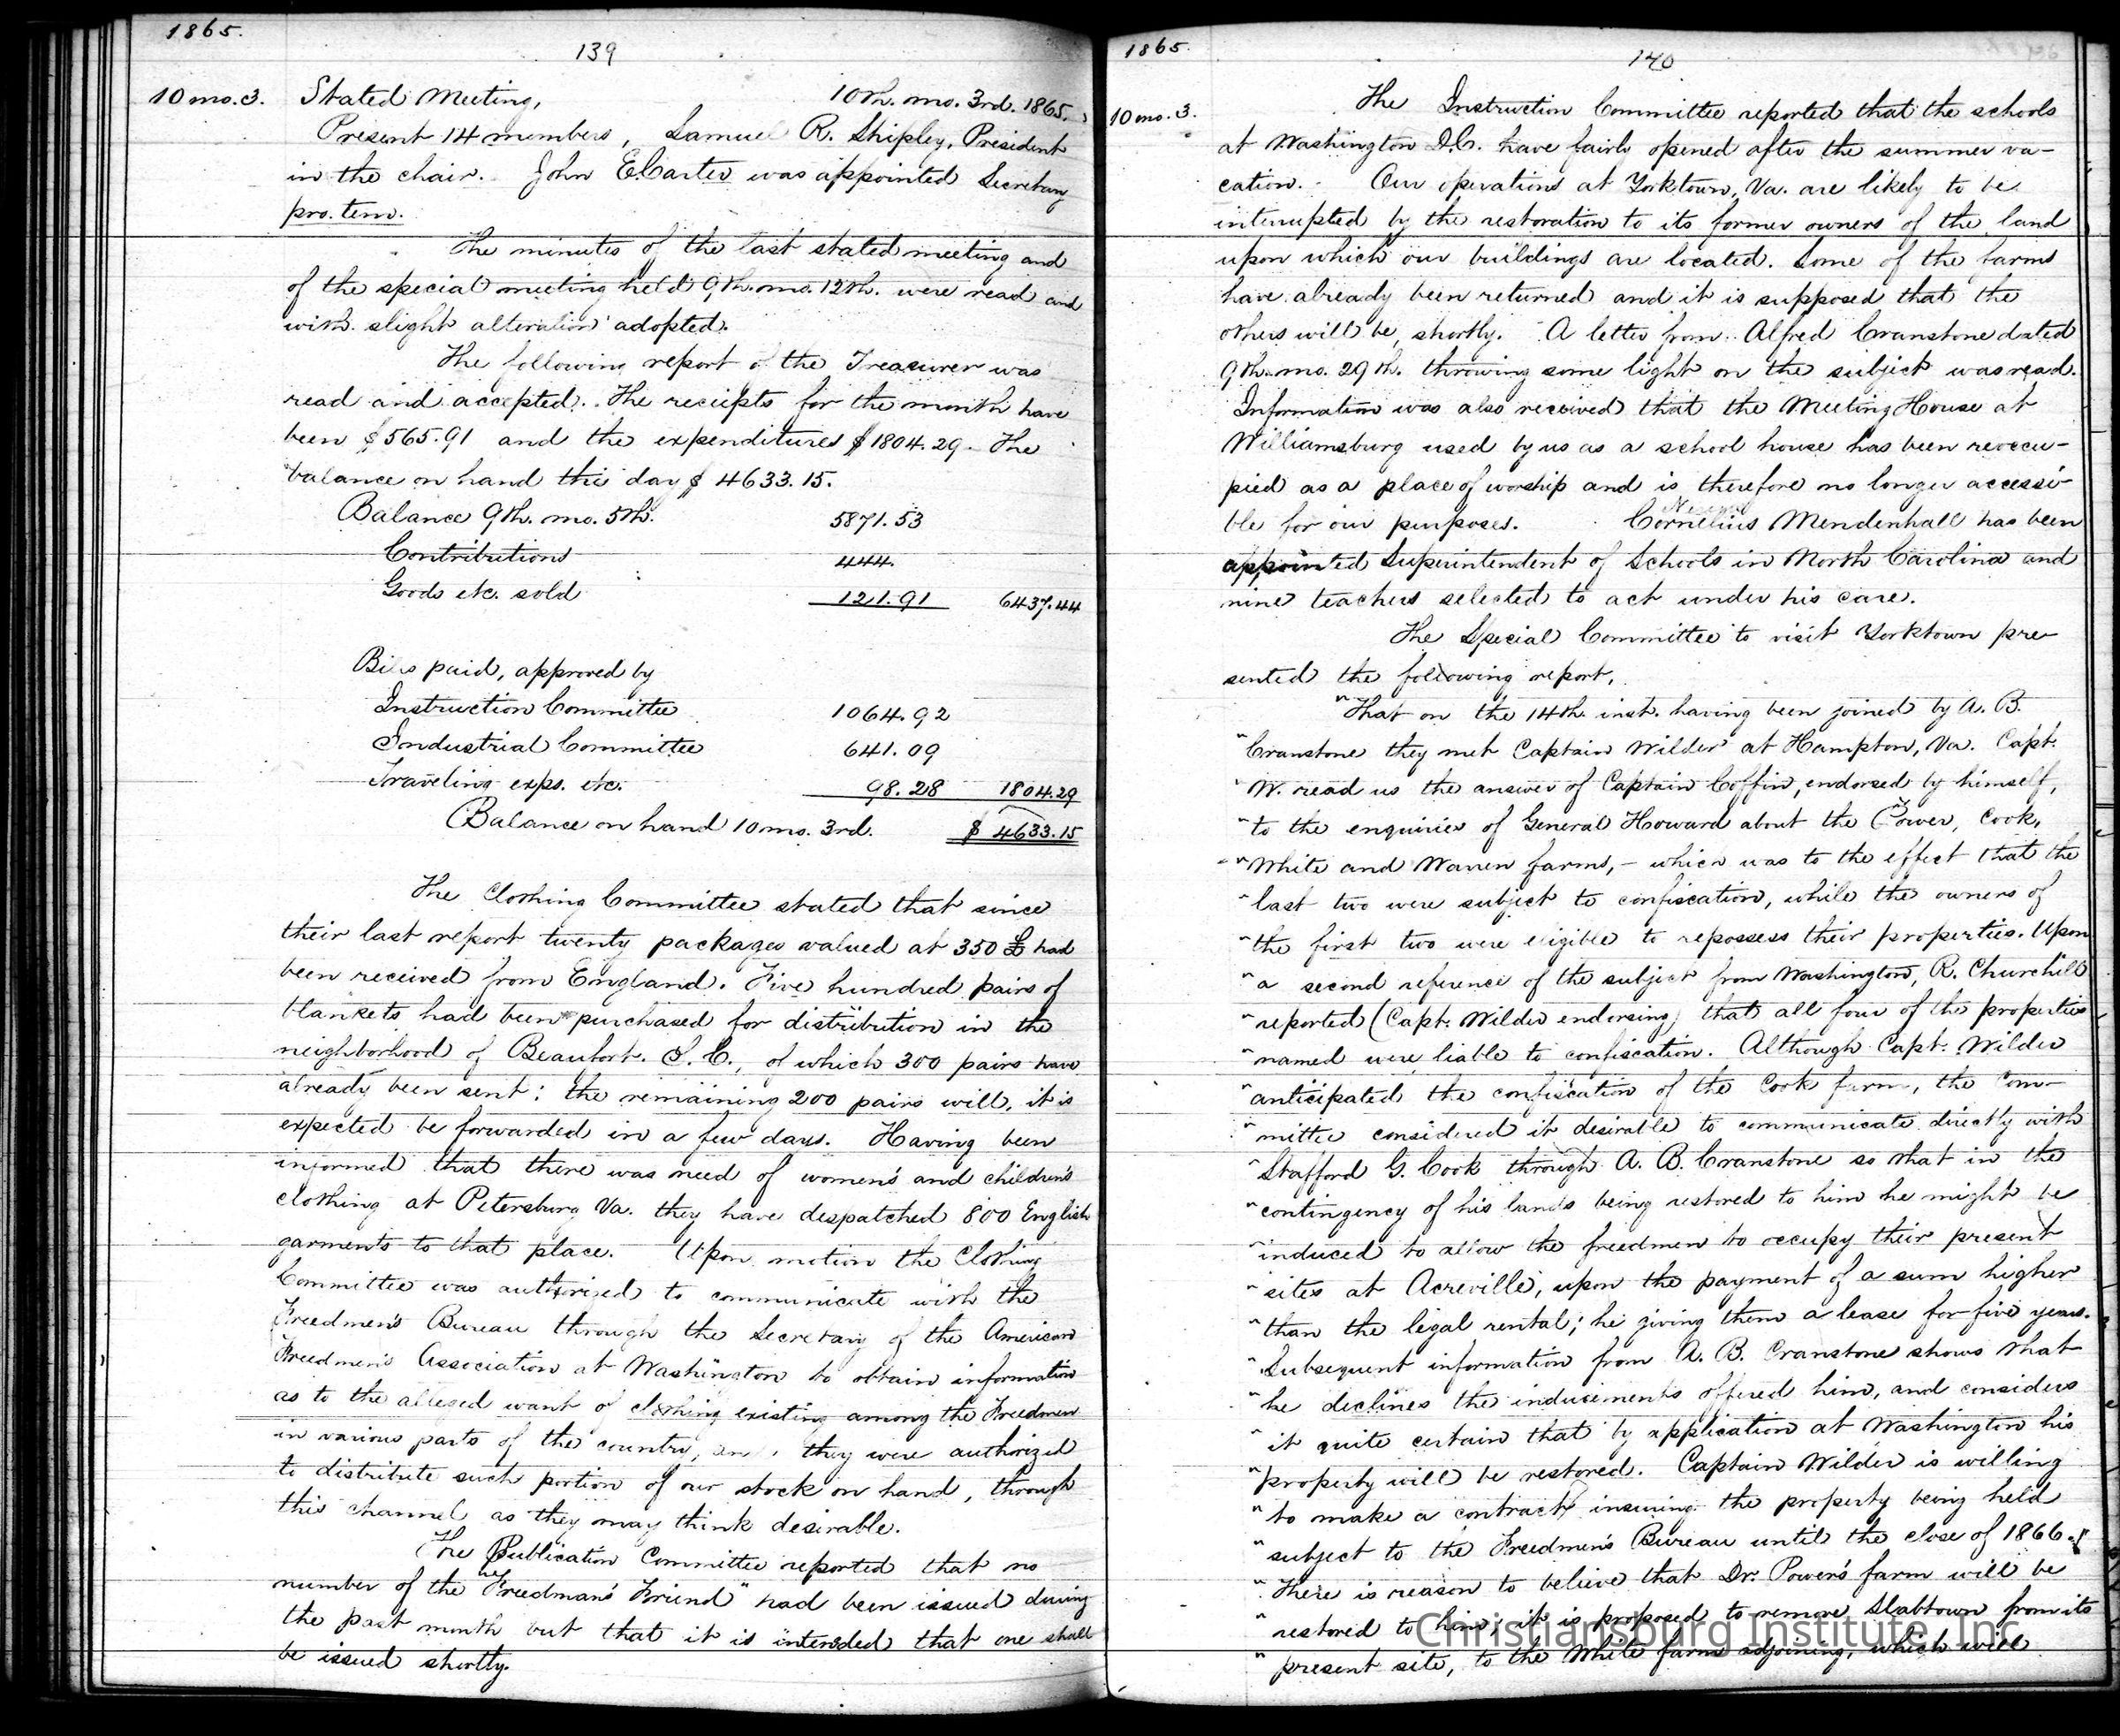 1865.
139
10 mo. 3.
Stated Meeting, 10th. mo. 3rd. 1865.
Present 14 members, Samuel R. Shipley, President
in the chair. John E. Carter was appointed Secretary
pro. tem.
The minutes of the last stated meeting and
of the special meeting held 9th. mo. 12th. were read and
with slight alteration adopted.
The following report of the Treasurer was
read and accepted. The reciepts for the month have
been $565.91 and the expenditures $1804.29. The
balance on hand this day $4633.15.
Balance 9th. mo. 5th. 5871.53
Contributions 444.
Goods etc. sold 121.91 6437.44
Bills paid, approved by
Instruction Committee 1064.92
Industrial Committee 641.09
Traveling exps. etc. 98.28 1804.29
Balance on hand 10 mo. 3rd. $ 4633.15
The Clothing Committee stated that since
their last report twenty packages valued at 350 £ had
been received from England. Five hundred pairs of
blankets had been purchased for distribution in the
neighborhood of Beaufort. S. C., of which 300 pairs have
already been sent; the remaining 200 pairs will, it is
expected be forwarded in a few days. Having been
informed that there was need of women's and children's
clothing at Petersburg Va. they have despatched 800 English
garments to that place. Upon motion the Clothing
Committee was authorized to communicate with the
Freedmen's Bureau through the Secretary of the American
Freedmen's Association at Washington to obtain information
as to the alleged want of clothing existing among the Freedmen
in various parts of the country, and they were authorized
to distribute such portion of our stock on hand, through
this channel as they may think desirable.
The Publication Committee reported that no
number of the "Freedman's Friend" had been issued during
the past month but that it is intended that one shall
be issued shortly.
1865.
140
10 mo. 3.
The Instruction Committee reported that the schools
at Washington D.C. have fairly opened after the summer va-
cation. Our operations at Yorktown, Va. are likely to be
interrupted by the restoration to its former owners of the land
upon which our buildings are located. Some of the farms
have already been returned and it is supposed that the
others will be, shortly. A letter from Alfred Cranstone dated
9th. mo. 29th. throwing some light on the subject was read.
Information was also received that the Meeting House at
Williamsburg used by us as a school house has been reoccu-
pied as a place of worship and is therefore no longer accessi-
ble for our purposes. Cornelius Mendenhall has been
appointed Superintendent of Schools in North Carolina and
nine teachers selected to act under his care.
The Special Committee to visit Yorktown pre-
sented the following report,
"That on the 14th. inst. having been joined by A. B.
"Cranstone they met Captain Wilder at Hampton, Va. Capt.
"W. read us the answer of Captain Coffin, endorsed by himself,
"to the enquiries of General Howard about the Power, Cook,
"White and Warren farms, - which was to the effect that the
"last two were subject to confiscation, while the owners of
"the first two were eligible to repossess their properties. Upon
"a second reference of the subject from Washington, R. Churchill
"reported (Capt. Wilder endorsing) that all four of the properties
"named were liable to confiscation. Although Capt. Wilder
"anticipated the confiscation of the Cook farm, the Com-
"mittee considered it desirable to communicate directly with
"Stafford G. Cook through A. B. Cranstone so that in the
"contingency of his lands being restored to him he might be
"induced to allow the freedmen to occupy their present
"sites at Acreville, upon the payment of a sum higher
"than the legal rental; he giving them a lease for five years.
"Subsequent information from A. B. Cranstone shows that
"he declines the inducements offered him, and considers
"it quite certain that by application at Washington his
"property will be restored. Captain Wilder is willing
"to make a contract, insuring the property being held
"subject to the Freedmen's Bureau until the close of 1866.
"There is reason to believe that Dr. Power's farm will be
"restored to him; it is proposed to remove Slabtown from its
"present site, to the White farm adjoining, which will
Christiansburg Institute, Inc.